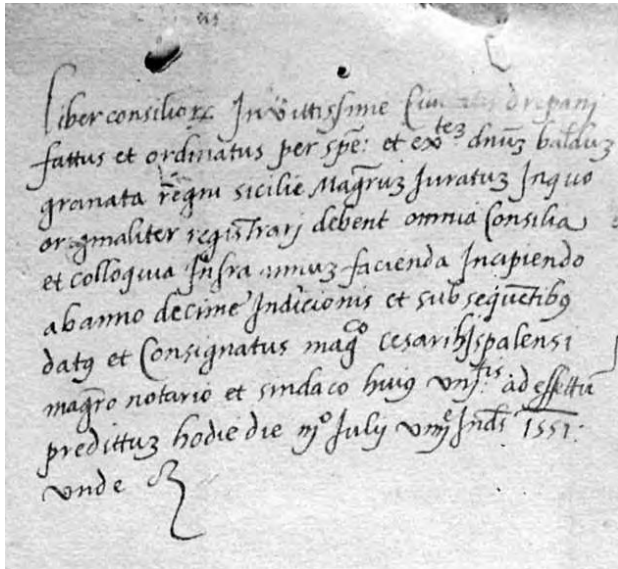 Liber consilior(um) Invittissime Civitatis drepani
fattus et ordinatus per spe: et ex.tez dnūz balduz
granata regni sicilie Magr̄uz Juratuz Inquo
originaliter registrarj debent omnia Consilia
et colloquia Infra annuz facienda Incipiendo
ab anno decime Indicionis et subsequētibꝯ
datꝯ et Consignatus mag.co cesari hispalensi
magr̄o notario et sindaco huiꝯ vnj.tis ad effettū
predittuz hodie die iijº Julij Indis 1551:
unde